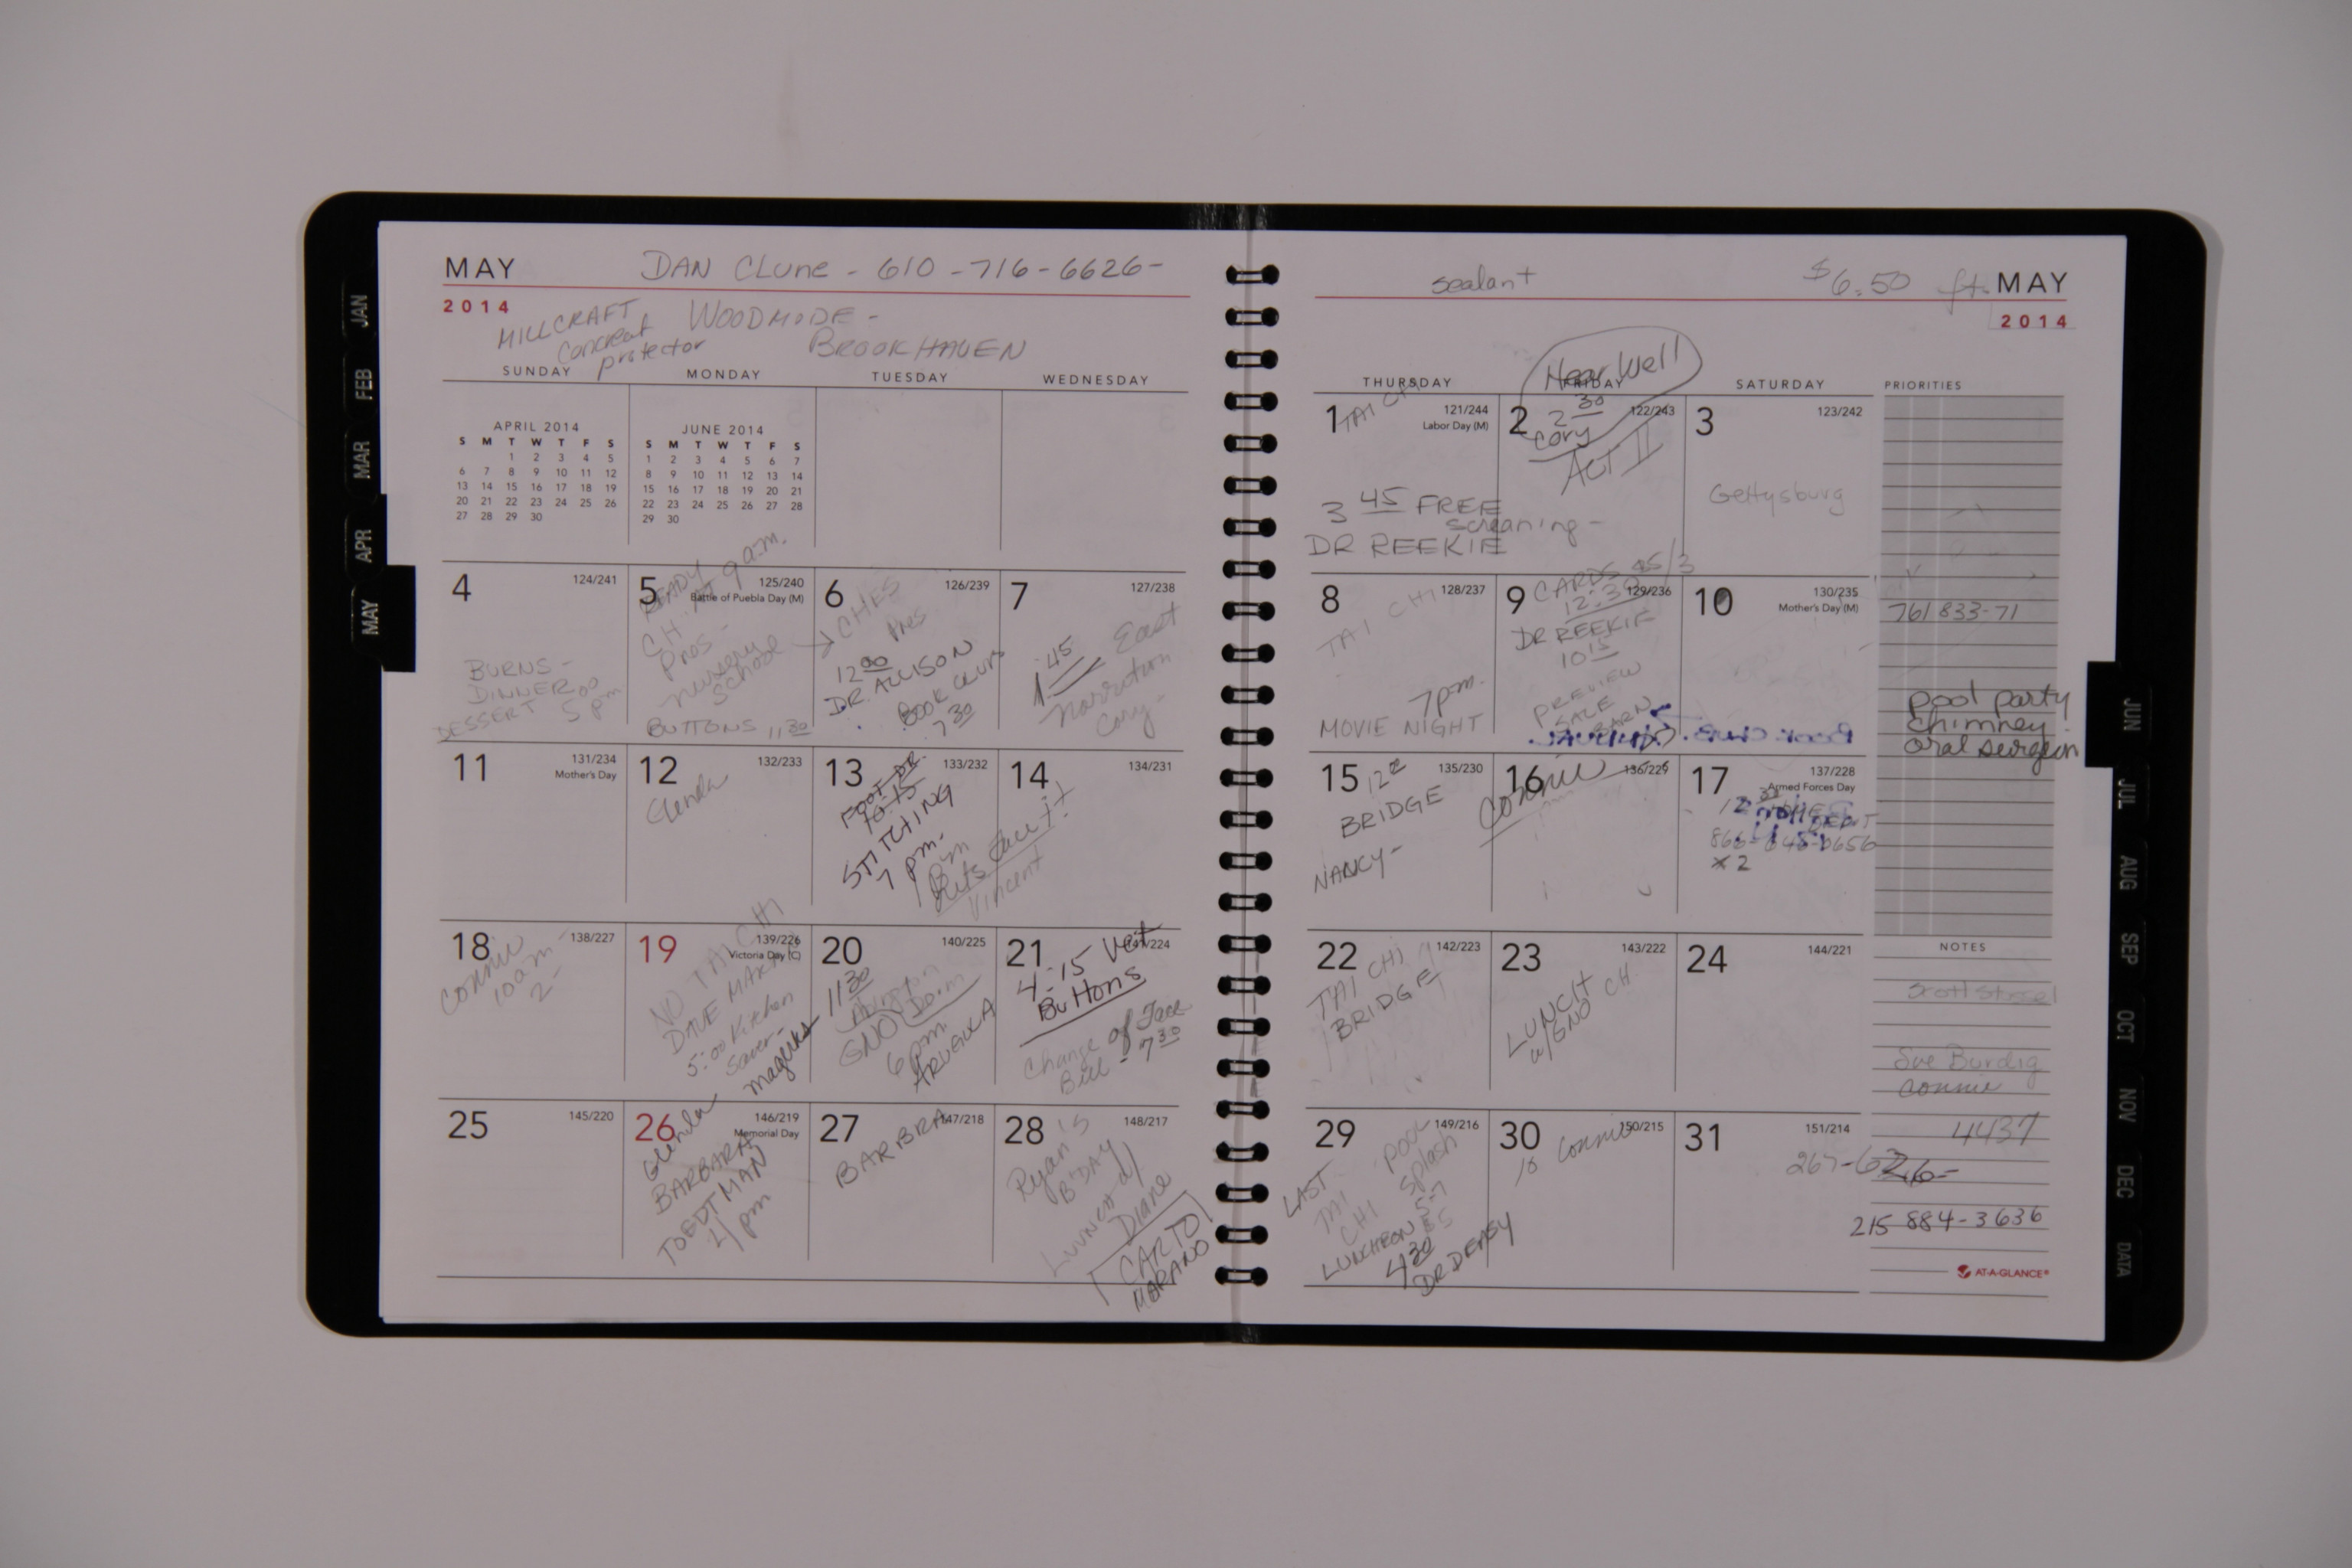 MAY
2014
DAN CLUNE - 610-716-6626-
MILLCRAFT WOODMODE -
protector BROOKHAVEN
SUNDAY MONDAY TUESDAY WEDNESDAY
APRIL 2014
S M T W T F S
1 2 3 4 5
6 7 8 9 10 11 12
13 14 15 16 17 18 19
20 21 22 23 24 25 26
27 28 29 30
JUNE 2014
S M T W T F S
1 2 3 4 5 6 7
8 9 10 11 12 13 14
15 16 17 18 19 20 21
22 23 24 25 26 27 28
29 30
4 124/241
BURNS -
DINNER
DESSERT 5 00 pm
5 125/240
Battle of Puebla Day (M)
READY
CH. AT 9 a.m.
Pros -
nursery
School
BUTTONS 11 30
6 126/239
CHES
Pres
12 00
DR. ALLISON
BOOK CLUB
7 30
7 127/238
1 45 East
Cory -
11 131/234
Mother's Day
12 132/233
Glenda
13 133/232
FOOT DR.
10:15
STITCHING
7 pm.
14 134/231
Face it!
Vincent
18 138/227
Connie
10am -
2
19 139/226
Victoria Day (C)
NO TAI CHI
DAVE
5:00 Kitchen
Saver
20 140/225
11 30
GNO
6 pm
ARUGULA
21 141/224
4:15 Vet
Buttons
Change of Face
Bill - 7 30
25 145/220
26 146/219
Memorial Day
Glenda
BARBARA
TOEDTMAN
1 pm
27 147/218
BARBRA
28 148/217
Ryan's
B'DAY
Lunch w/
Diane
CAR TO
MARANO
MAY
2014
sealant $6.50 ft.
Hear Well
THURSDAY FRIDAY SATURDAY
1 121/244
Labor Day (M)
TAI CHI
3 45 FREE
screaning -
DR REEKIE
2 122/243
2 30
Cory
ACT II
3 123/242
Gettysburg
8 128/237
TAI CHI
7pm.
MOVIE NIGHT
9 129/236
CARDS
12:30
DR REEKIE
10 15
PREVIEW
SALE
BARN
10 130/235
Mother's Day (M)
15 135/230
BRIDGE
NANCY -
16 136/229
Connie
17 137/228
Armed Forces Day
x 2
22 142/223
TAI CHI
BRIDGE
23 143/222
LUNCH CH
w/GNO
24 144/221
29 149/216
LAST
TAI
CHI
LUNCHEON
POOL
Splash
5-7
4 30
DR DEASY
30 150/215
Connie
31 151/214
PRIORITIES
761 833-71
pool party
chimney
oral surgeon
NOTES
Sue Burdig
Connie
4437
215 884-3636
AT-A-GLANCE®
JAN
FEB
MAR
APR
MAY
JUN
JUL
AUG
SEP
OCT
NOV
DEC
DATA